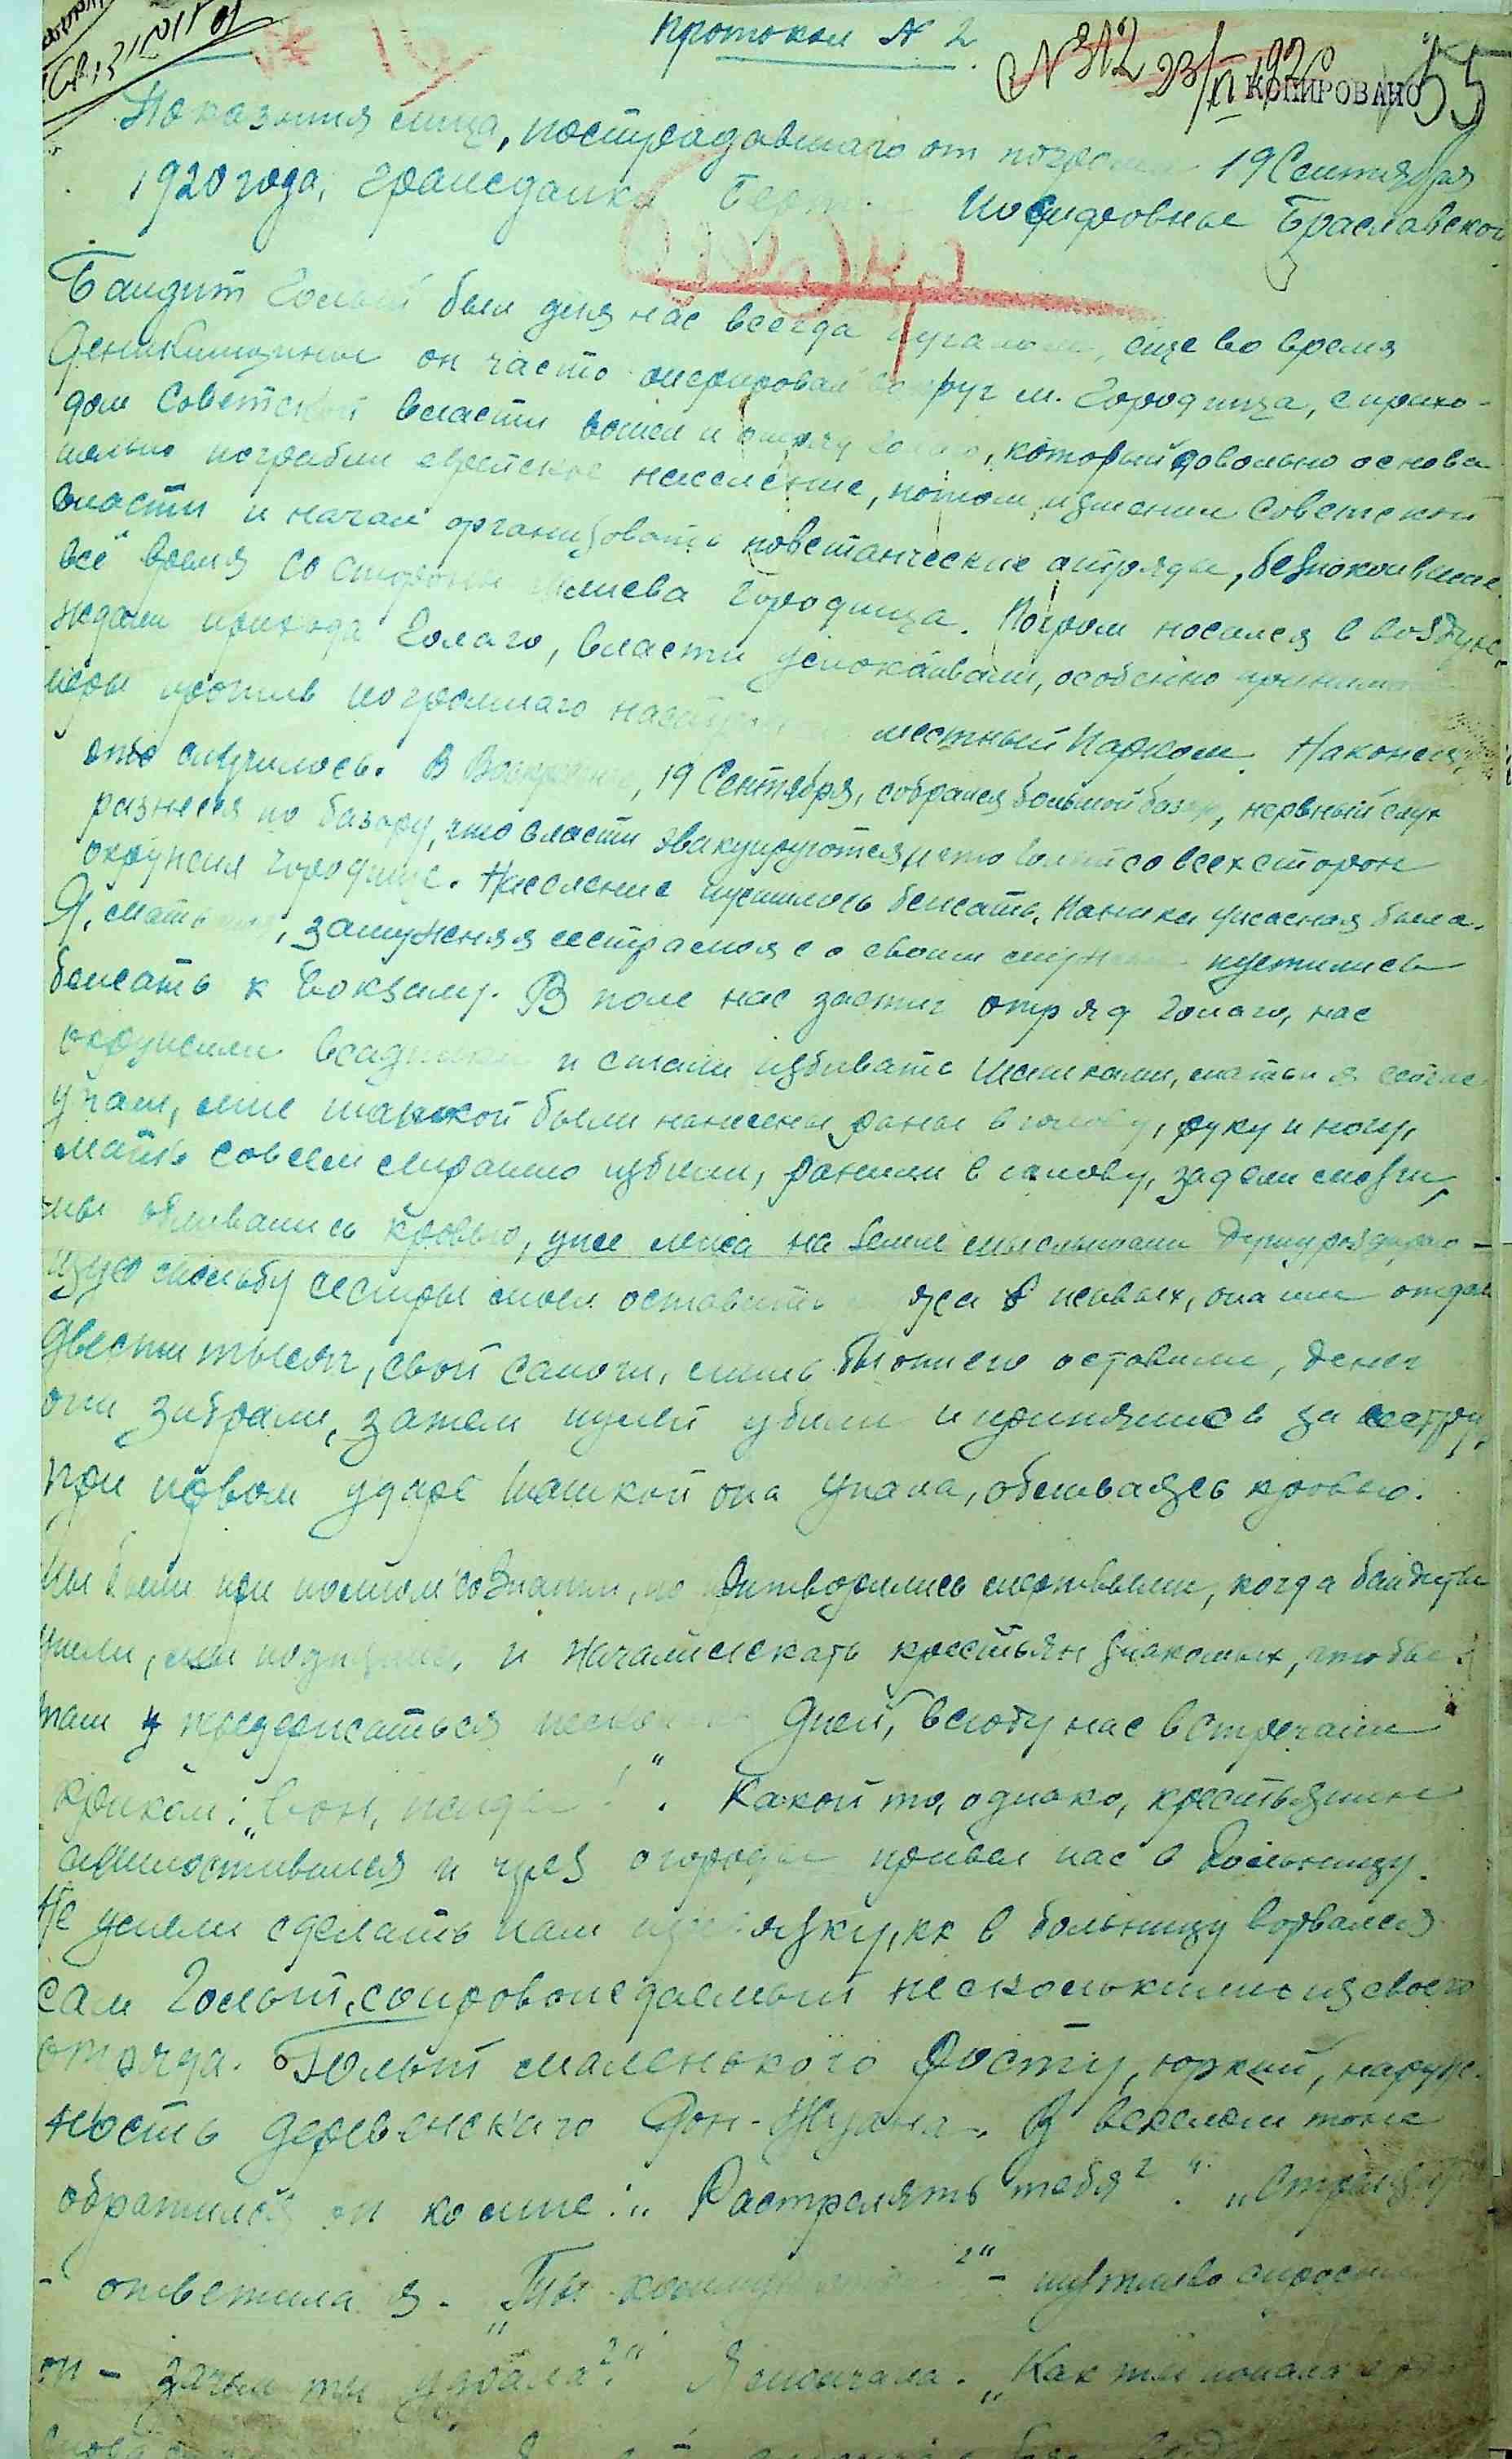 Протокол № 2.
№ 312 23/IX 1920 55
КОПИРОВАНО
Показания лица, пострадавшаго от погрома 19 Сентября
1920 года, гражданки Иосифовны Браславской
Бандит Голый был для нас всегда пугалом, еще во время
Деникинщины он часто оперировал вокруг м. Городища, с прихо-
дом Советской власти вошел и отряд Голаго, который довольно основа
тельно пограбил еврейское население, потом изменил Советской
власти и начал организовать повстанческие отряды, безпокоившие
всё время со стороны Городища. Погром носился в воздухе,
ждали прихода Голаго, власти успокаивали, особенно принимал
меры против погромнаго местный Парком. Наконец,
это случилось. В Воскресенье, 19 Сентября, собрался большой базар, нервный слух
разнесся по базару, что власти эвакуируются и что Голый со всех сторон
окружил Городище. Население пустилось бежать, паника ужасная была.
Я, мать моя, замужняя сестра моя со своим мужем пустились
бежать к вокзалу. В поле нас застиг отряд Голаго, нас
окружили всадники и стали избивать шашками, мать и я
упали, мне шашкой были нанесены раны в голову, руку и ногу,
мать совсем страшно избили, ранили в голову, задели мозги,
мы обливались кровью, уже лежа на земле мы слыхали душу раздираю-
щую мольбу сестры моей оставить мужа в живых, она им отдала
двести тысяч, свои сапоги, лишь бы они его оставили, денег
они забрали, затем пулей убили и принялись за сестру,
при первом ударе шашкой она упала, обливаясь кровью.
Мы были при полном сознании, но притворились мертвыми, когда бандиты
ушли, мы и начали искать крестьян знакомых, чтобы
там продержаться несколько дней, всюду нас встречали
криком: „Вон, жиды!“. Какой то, однако, крестьянин
смилостивился и чрез огороды привел нас в больницу.
Не успели сделать нам перевязку, кк в больницу ворвался
сам Голый, сопровождаемый несколькими из своего
отряда. Голый маленького росту, юркий, наруж-
ность деревенскаго Дон-Жуана. В веселом тоне
обратился он ко мне: „Растрелять тебя?“. „Стреляй“
- ответила я. „Ты - шутливо спросил
он - зачем ты удрала?“ Я молчала. „Как ты попала